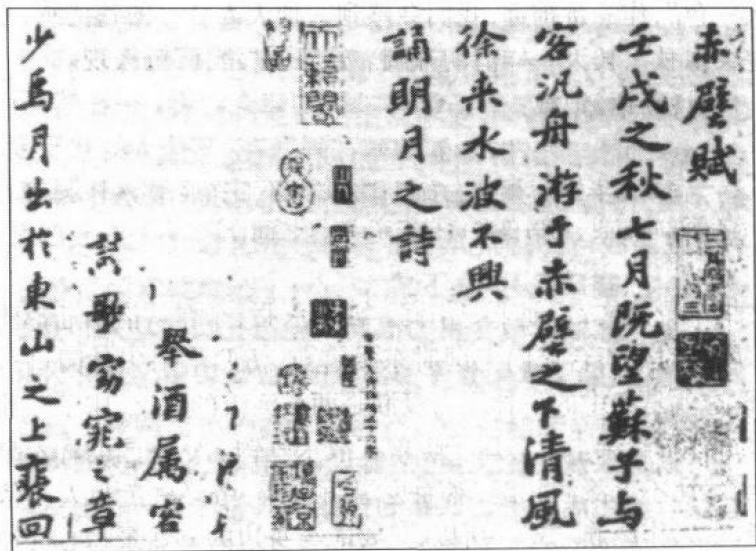 赤壁賦
壬戌之秋七月既望蘇子与
客汎舟游于赤壁之下清風
徐来水波不興
誦明月之詩
舉酒属客
歌窈窕之章
少焉月出於東山之上裵回